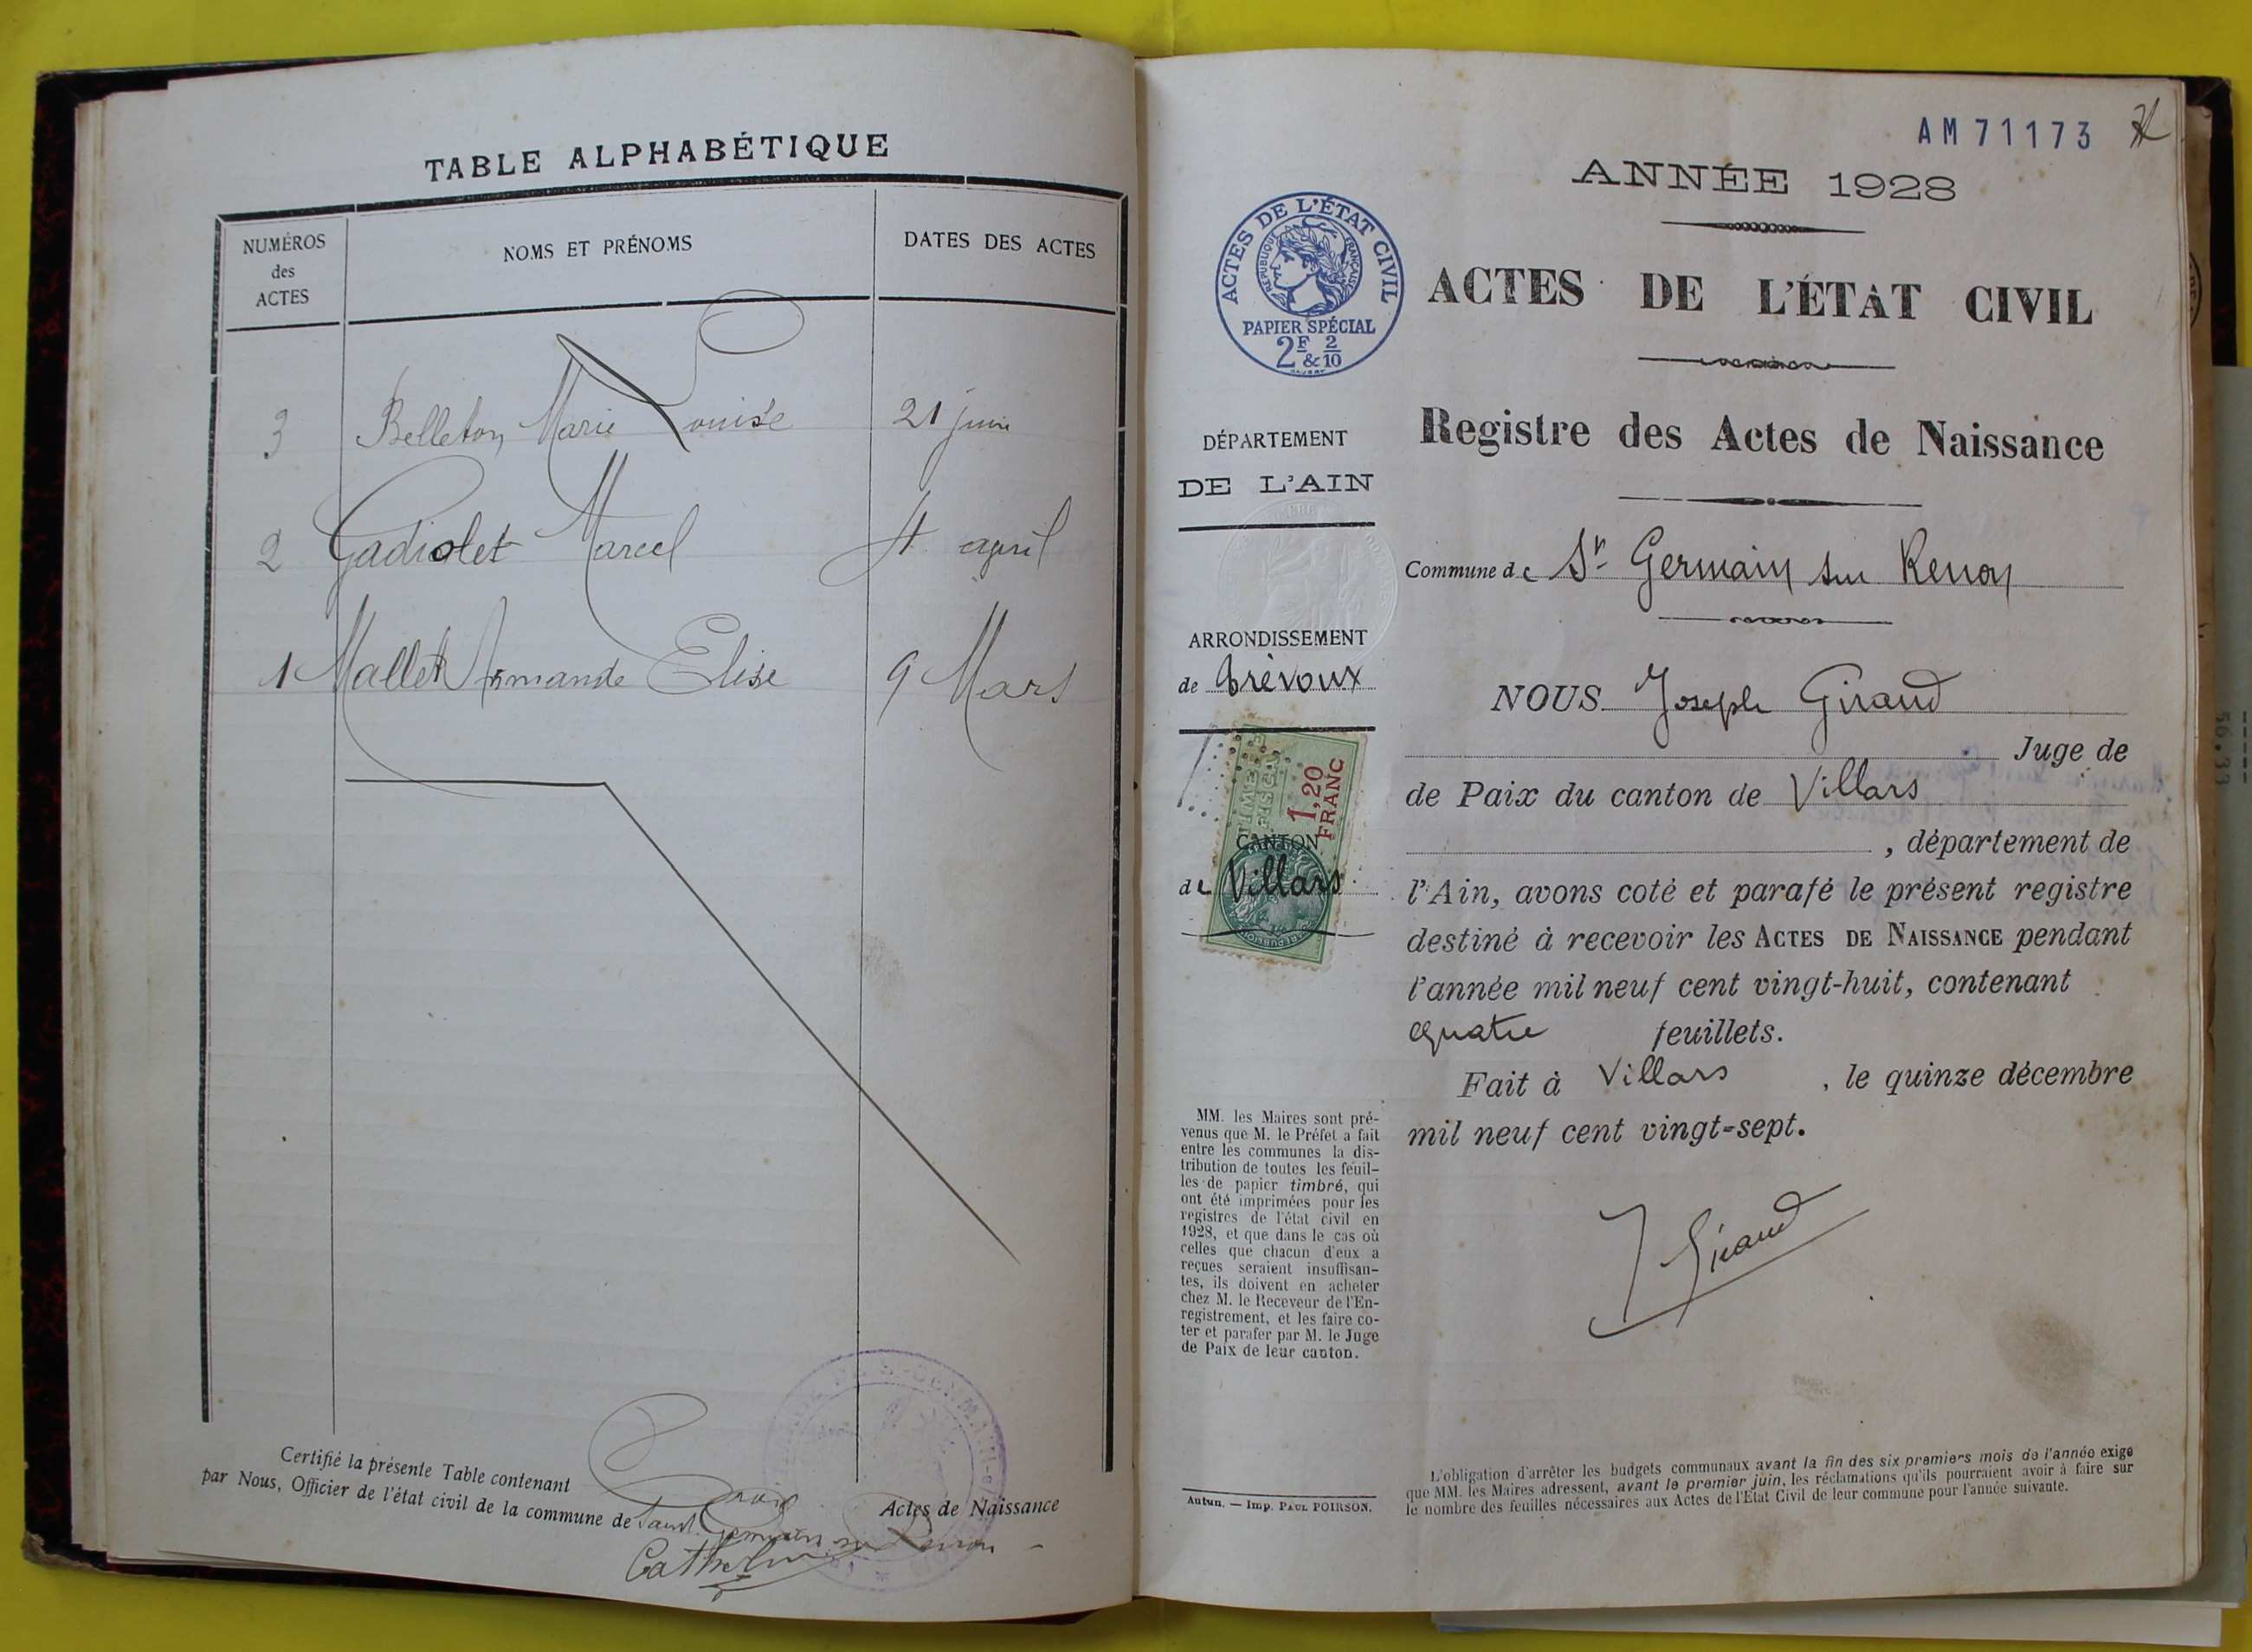 TABLE ALPHABÉTIQUE
NUMÉROS
des
ACTES
NOMS ET PRÉNOMS
DATES DES ACTES
3 Belleton Marie Louise 21 juin
2 Gadiolet Marcel 4 avril
1 Mallet Armande Elise 9 Mars
Certifié la présente Table contenant trois Actes de Naissance
par Nous, Officier de l'état civil de la commune de Saint Germain sur Renon
AM 71173
ANNÉE 1928
ACTES DE L'ÉTAT CIVIL
RÉPUBLIQUE FRANÇAISE
PAPIER SPÉCIAL
2F & 2/10
ACTES DE L'ÉTAT CIVIL
Registre des Actes de Naissance
DÉPARTEMENT
DE L'AIN
Commune de St Germain sur Renon
ARRONDISSEMENT
de Trévoux
1,20
FRANC
CANTON
de Villars
NOUS Joseph Giraud
Juge de
de Paix du canton de Villars
, département de
l'Ain, avons coté et parafé le présent registre
destiné à recevoir les ACTES DE NAISSANCE pendant
l'année mil neuf cent vingt-huit, contenant
quatre feuillets.
Fait à Villars, le quinze décembre
mil neuf cent vingt-sept.
J Giraud
MM. les Maires sont pré-
venus que M. le Préfet a fait
entre les communes la dis-
tribution de toutes les feuil-
les de papier timbré, qui
ont été imprimées pour les
registres de l'état civil en
1928, et que dans le cas où
celles que chacun d'eux a
reçues seraient insuffisan-
tes, ils doivent en acheter
chez M. le Receveur de l'En-
registrement, et les faire co-
ter et parafer par M. le Juge
de Paix de leur canton.
Autun. — Imp. PAUL POIRSON.
L'obligation d'arrêter les budgets communaux avant la fin des six premiers mois de l'année exige
que MM. les Maires adressent, avant le premier juin, les réclamations qu'ils pourraient avoir à faire sur
le nombre des feuilles nécessaires aux Actes de l'Etat Civil de leur commune pour l'année suivante.